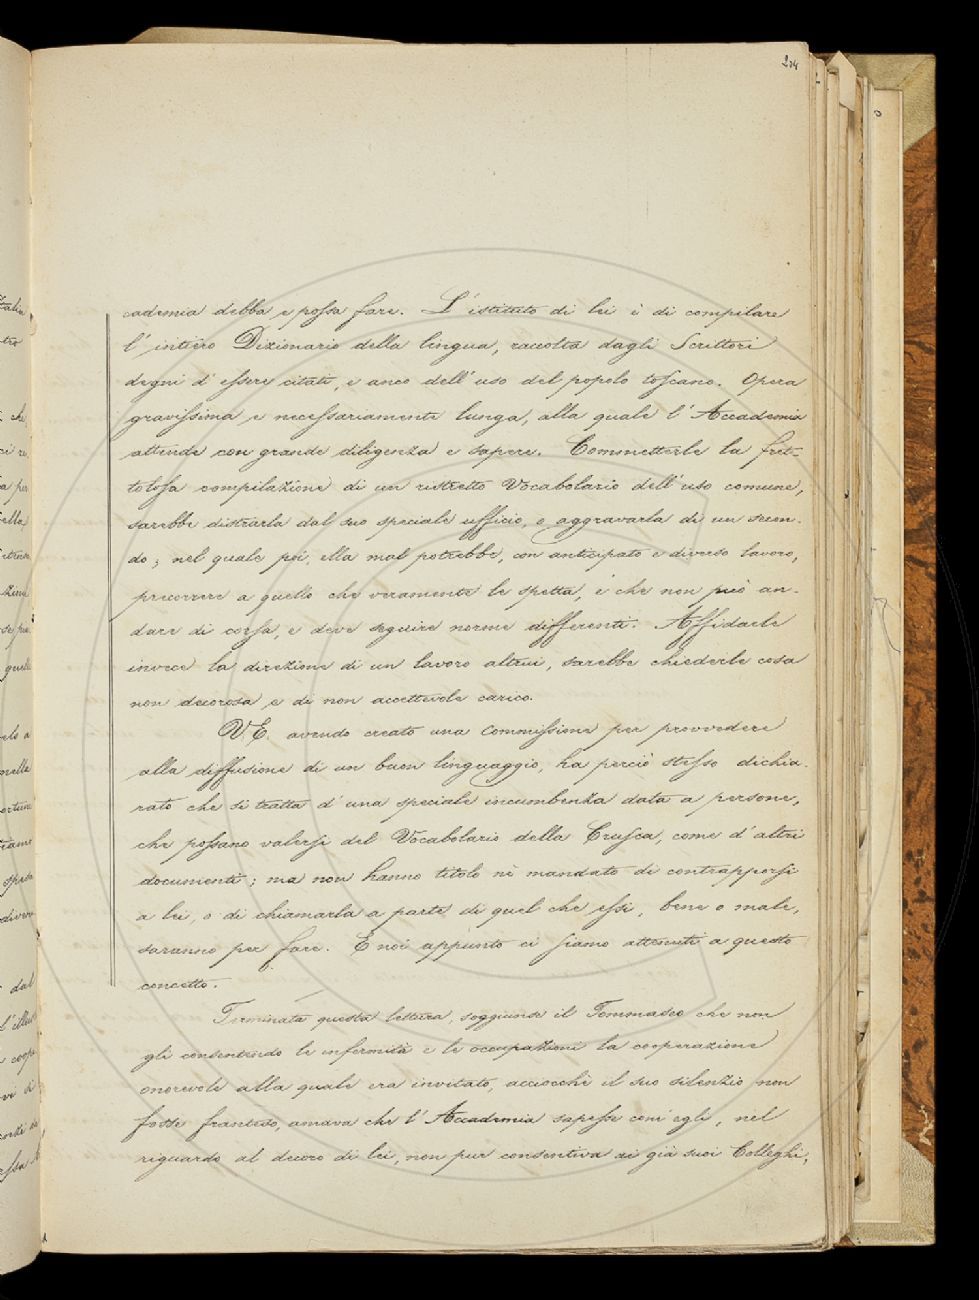 204
cademia debba e possa fare. L' istituto di lei è di compilare
l' intiero Dizionario della lingua, raccolta dagli Scrittori
degni d' essere citati, e anco dell' uso del popolo toscano. Opera
gravissima e necessariamente lunga, alla quale l' Accademia
attende con grande diligenza e sapere. Commetterle la fret-
tolosa compilazione di un ristretto Vocabolario dell' uso comune,
sarebbe distrarla dal suo speciale ufficio, e aggravarla di un secon-
do; nel quale poi, ella mal potrebbe, con anticipato e diverso lavoro,
precorrere a quello che veramente le spetta, e che non può an-
dare di corsa, e deve seguire norme differenti. Affidarle
invece la direzione di un lavoro altrui, sarebbe chiederle cosa
non decorosa, e di non accettevole carico.
V. E. avendo creato una Commissione per provvedere
alla diffusione di un buon linguaggio, ha perciò stesso dichia-
rato che si tratta d' una speciale incumbenza data a persone,
che possano valersi del Vocabolario della Crusca, come d' altri
documenti; ma non hanno titolo nè mandato di contrapporsi
a lei, o di chiamarla a parte di quel che essi, bene o male,
saranno per fare. E noi appunto ci siamo attenuti a questo
concetto.
Terminata questa lettura, soggiunse il Tommaseo che non
gli consentendo le infermità e le occupazioni la cooperazione
onorevole alla quale era invitato, acciocchè il suo silenzio non
fosse franteso, amava che l' Accademia sapesse com' egli, nel
riguardo al decoro di lei, non pur consentiva ai già suoi Colleghi,